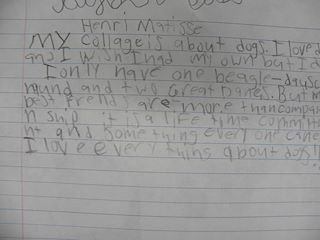 Henri Matisse
My collage is about dogs. I love d
and I wish I had my own but I d
I only have one beagle-
hound and two Great Danes. But m
best frends are more than compan
n ship it is a life time committm
nt and something every one can e
I love every thing about dogs!